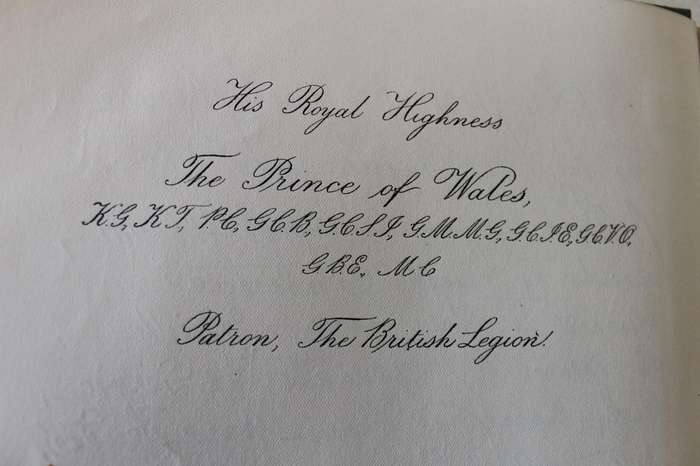 His Royal Highness
The Prince of Wales,
K.G, K.T, P.C, G.C.B, G.C.S.I, G.M.M.G, G.C.I.E, G.C.V.O,
G.B.E, M.C
Patron, The British Legion.